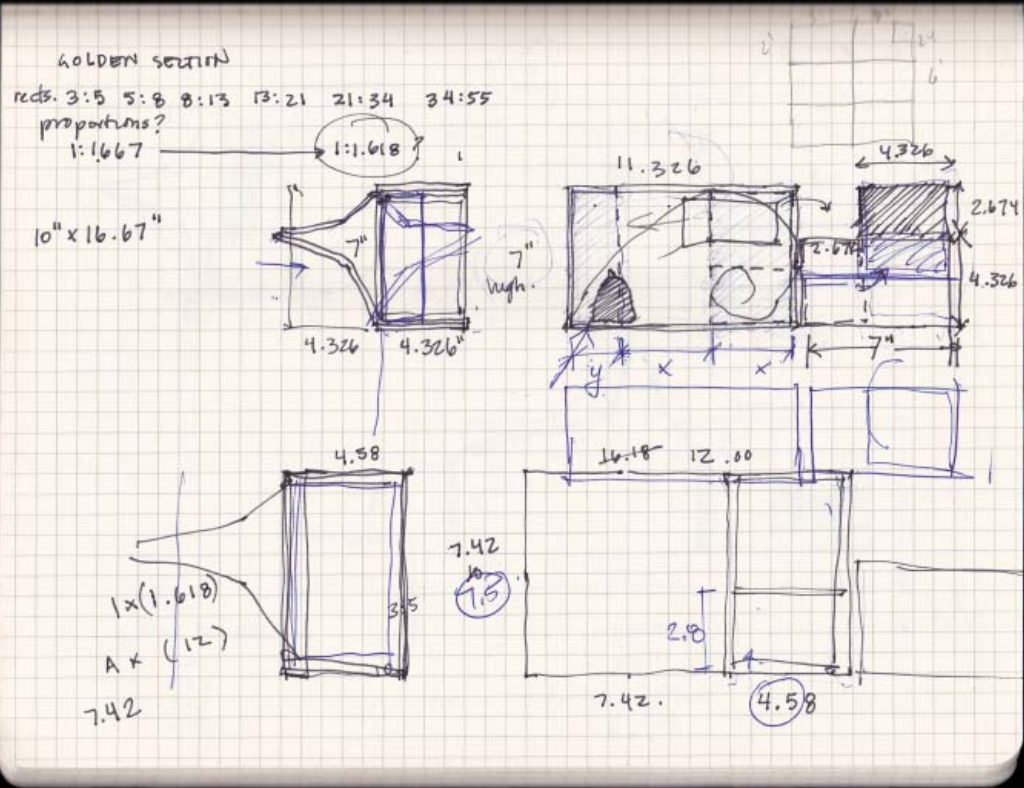 GOLDEN SECTION
rects. 3:5 5:8 8:13 13:21 21:34 34:55
proportions?
1:1.667 1:1.618 ?
10" x 16.67"
7"
4.326 4.326"
7"
high.
11.326
4.326
2.674
2.674
4.326
7"
y x x
4.58
1x(1.618)
A x (12)
7.42
3:5
7.42
7.5
16.18 12.00
2.8
7.42. 4.58